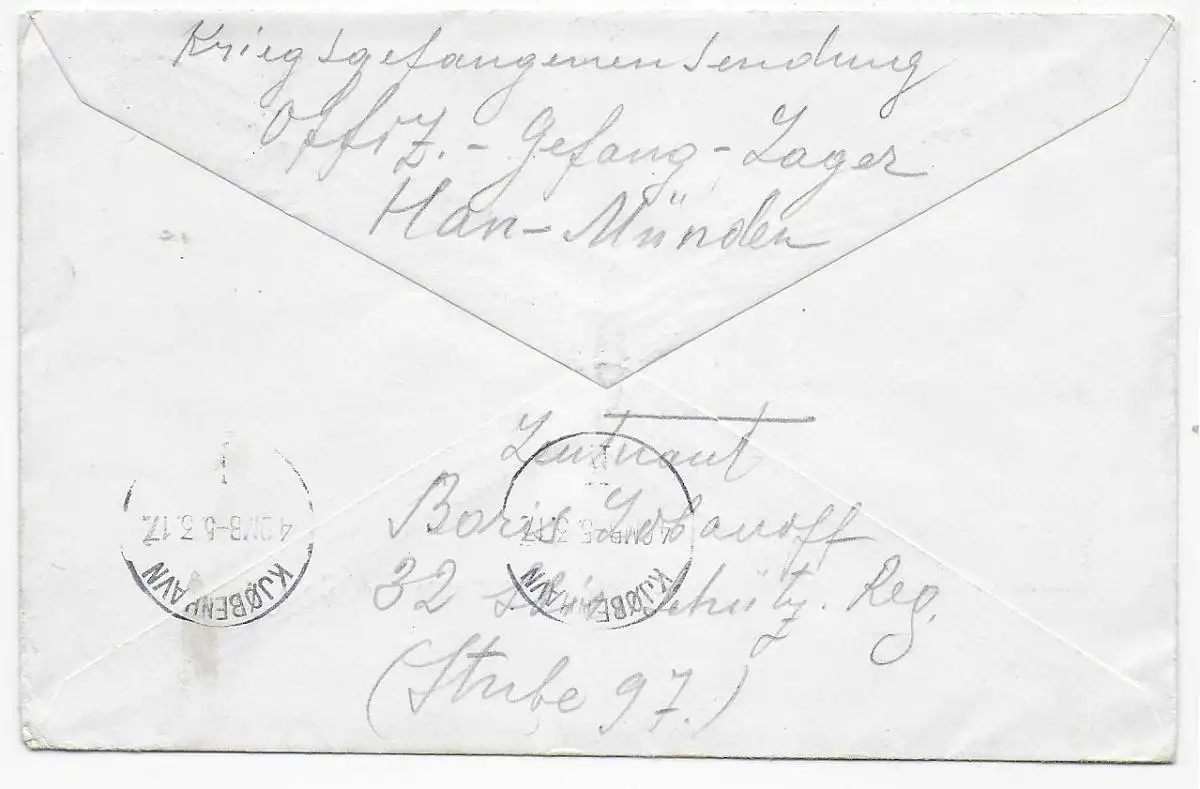 Kriegsgefangenensendung
Offiz.-Gefang-Lager
Han-Münden
Leutnant
Boris Lobanoff
32 Schütz. Reg.
(Stube 97.)
KJØBENHAVN
KJØBENHAVN